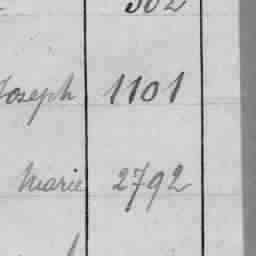 302
Joseph 1101
Marie 2792